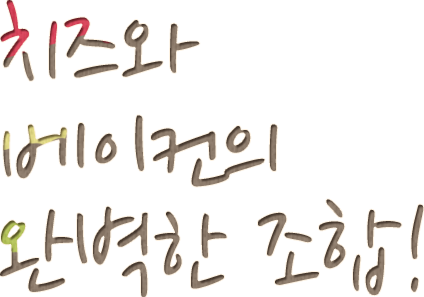 치즈와
베이컨의
완벽한 조합!